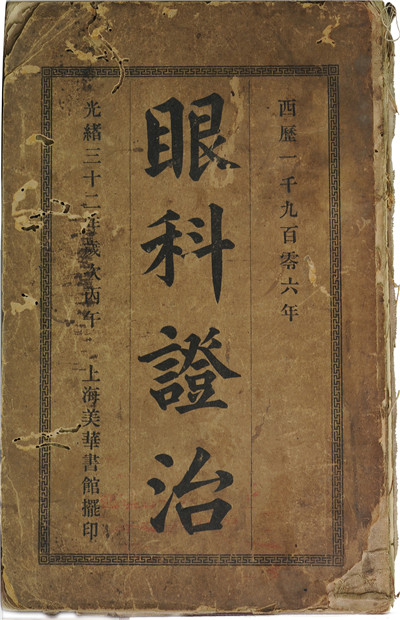 西歷一千九百零六年
眼科證治
光緒三十二年歲次丙午 上海美華書館擺印